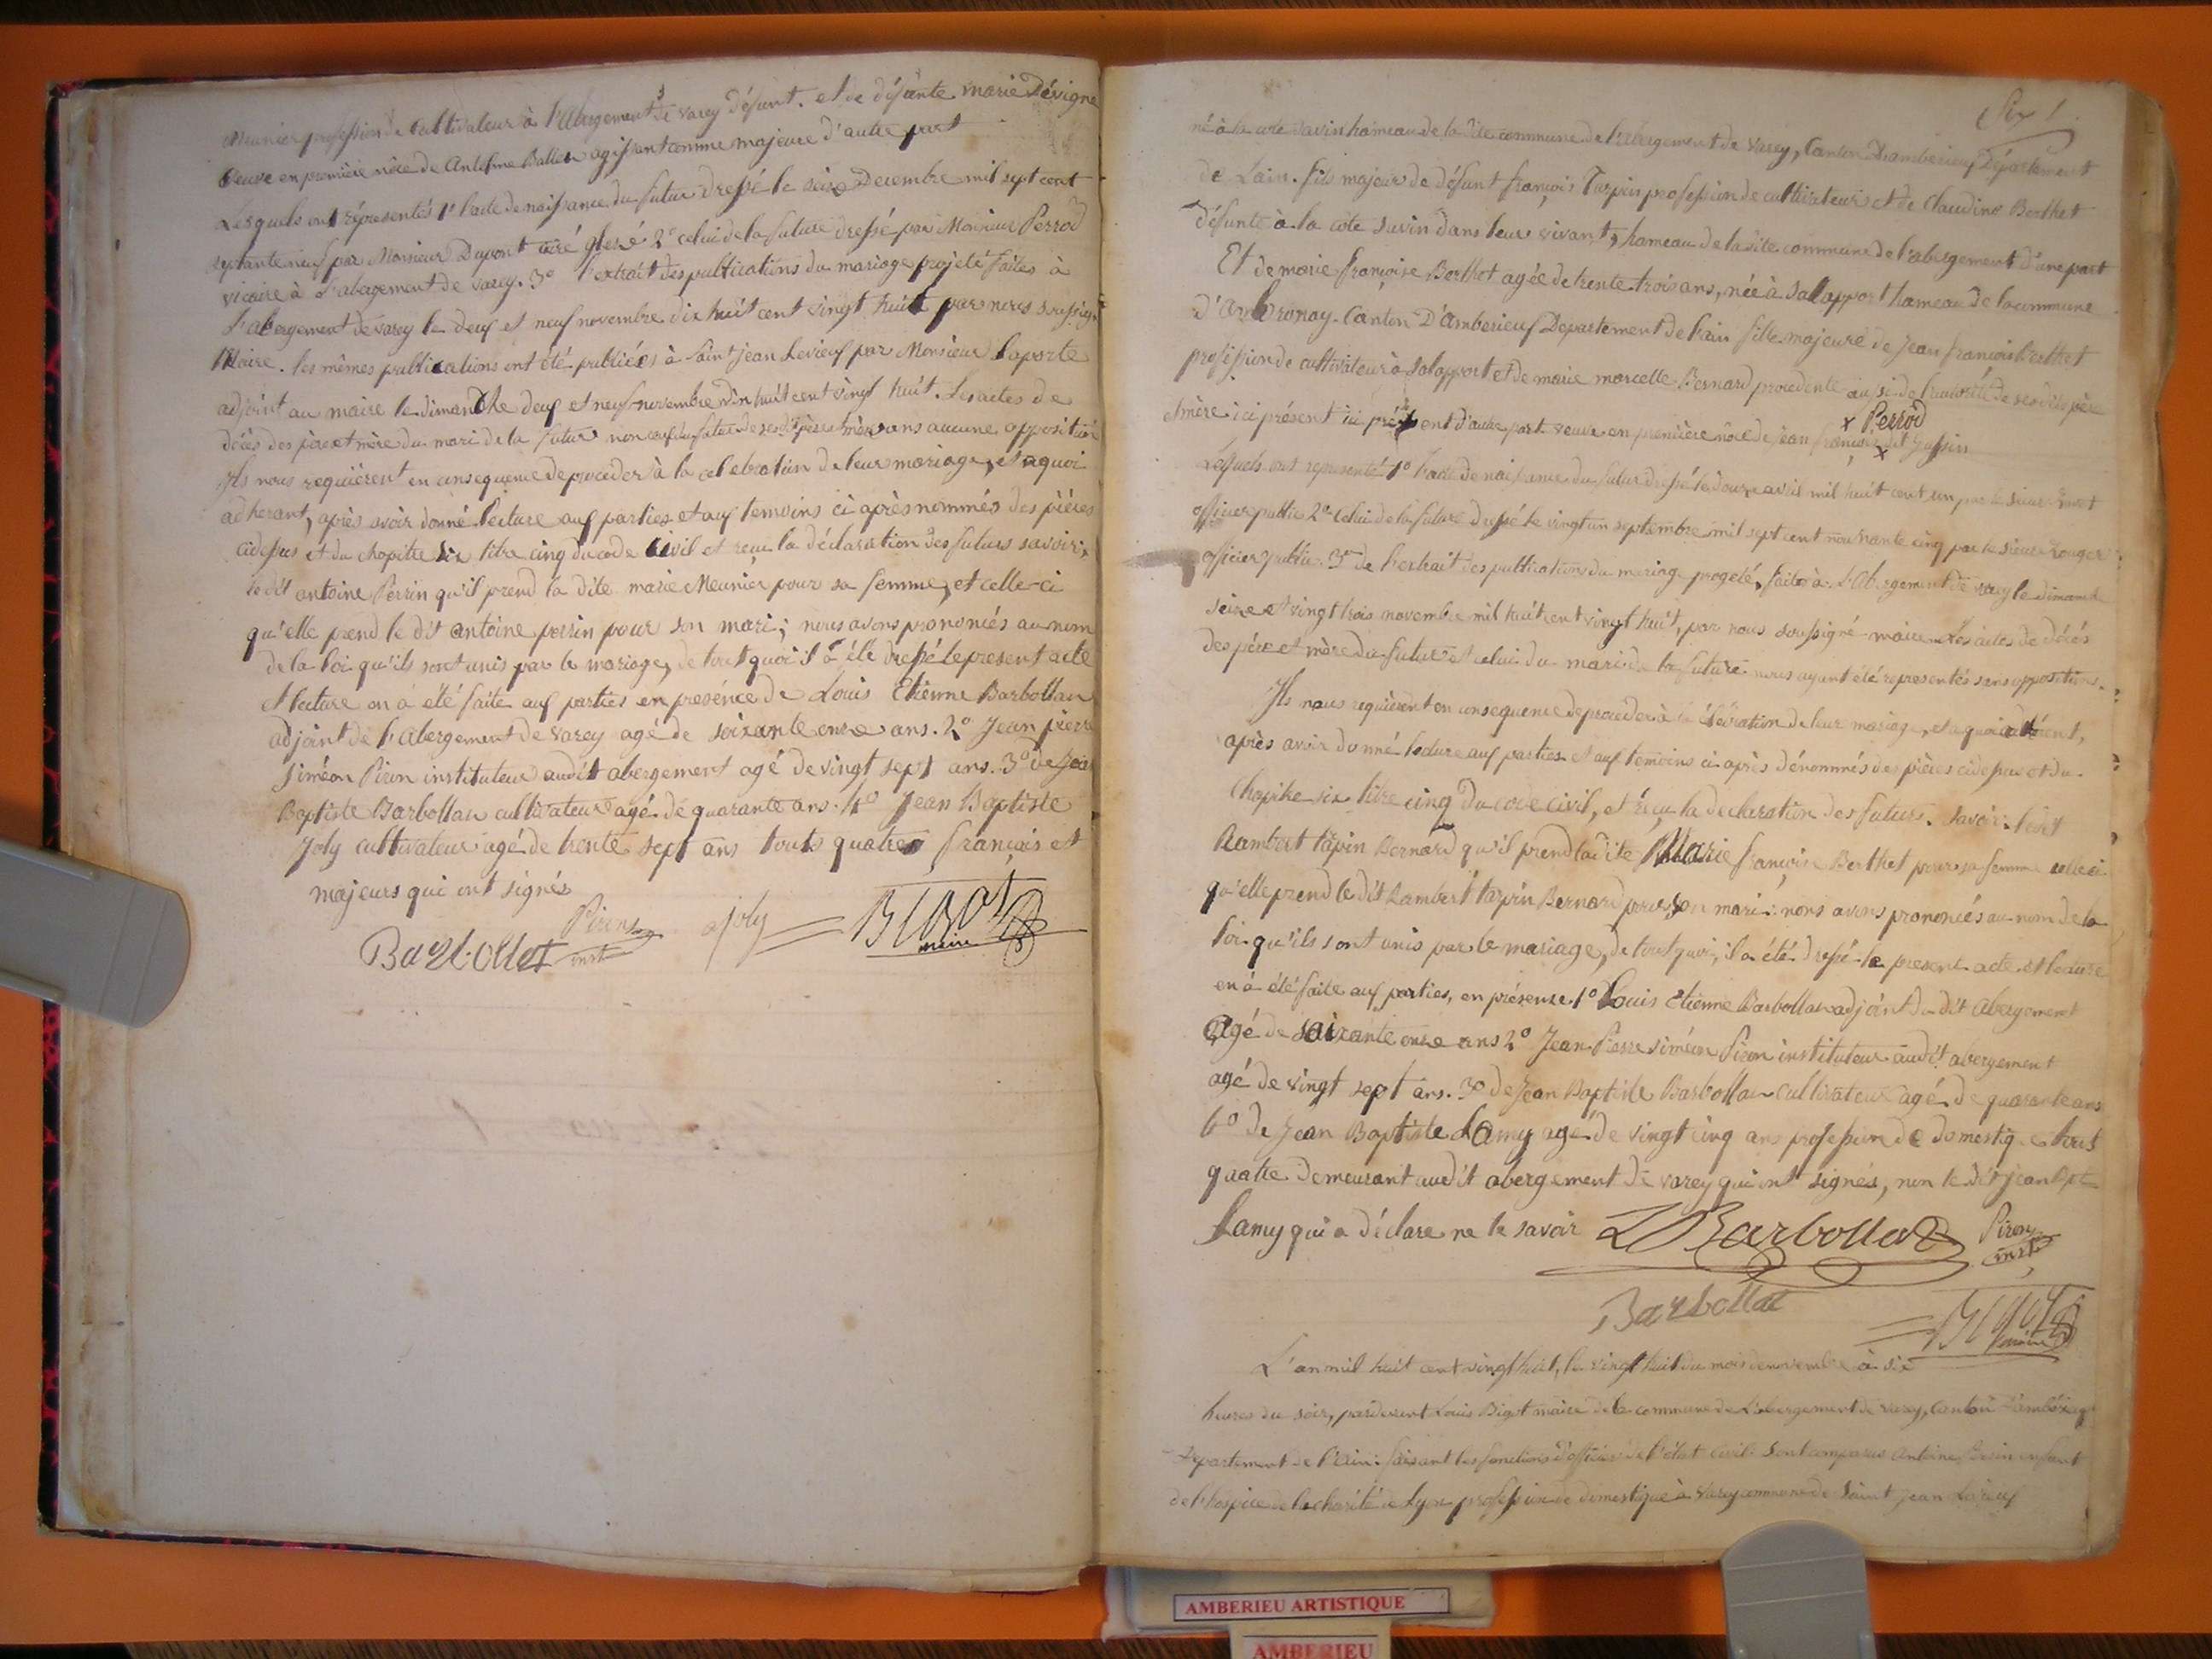 Meunier profession de Cultivateur à l'Abergement de varey défunt. et de défunte marie Dévigne
veuve en première nôce de Antelme Ballet agissant comme majeure d'autre part
Lesquels ont réprésentés 1° l'acte de naissance du futur dressé le seize Decembre mil sept cent
septante neuf par Monsieur Dupont curé 2° celui de la future dressé par Monsieur Perrod
vicaire à L'abergement de varey. 3° l'extrait des publications du mariage projeté faites à
L'abergement de varey le deux et neuf novembre dix huit cent vingt huit par nous soussigné
Maire. les mêmes publications ont été publiées à saint jean Levieux par Monsieur Laporte
adjoint au maire le dimanche deux et neuf novembre dix huit cent vingt huit. Les actes de
décès des père et mère du mari de la futur de ses dits père et mère sans aucune opposition
Ils nous requièrent en consequence de proceder à la celebration de leur mariage, et aquoi
adherant, après avoir donné lecture aux parties et aux temoins ci après nommés des pièces
cidessus et du chapitre six titre cinq du code civil et reçu la déclaration des futurs savoir:
le dit antoine Perrin qu'il prend la dite marie Meunier pour sa femme, et celle-ci
qu'elle prend le dit antoine perrin pour son mari; nous avons prononcés au nom
de la loi qu'ils sont unis par le mariage, de tout quoi il à été dressé le present acte
et lecture en à été faite aux parties en presénce de Louis Etienne Barbollat
adjoint de l'Abergement de varey agé de soixante onze ans. 2° Jean pierre
Siméon Piron instituteur audit abergement agé de vingt sept ans. 3° de Jean
Baptiste Barbollat cultivateur agé de quarante ans. 4° Jean Baptiste
Joly cultivateur agé de trente sept ans touts quatres français et
majeurs qui ont signés
Piron
Barbollat inst
a joly
Bigot
maire
Six
né à la cote savin hameau de la dite commune de l'abergement de varey, Canton D'amberieux Département
de Lain. fils majeur de défunt françois Tarpin profession de cultivateur et de Claudine Berthet
défunte à la cote savin dans leur vivant, hameau de la dite commune de l'abergement d'une part
Et de marie françoise Berthet agée de trente trois ans, née à Salapport hameau de la commune
d'Ambronay Canton D'Amberieux Departement de Lain fille majeure de Jean françois Berthet
profession de cultivateur à Salapport et de marie marcelle Bernard procedente aussi de l'autorité de ses dits père
et mère ici présent d'autre part veuve en première nôce de jean françois
x Perrod
dit
Lesquels ont representé 1° l'acte de naissance du futur dressé le douze avril mil huit cent un par le sieur
officier public 2° celui de la future dressé le vingt un septembre mil sept cent nonante cinq par le sieur Rouger
officier public. 3° de l'extrait des publications du mariage progeté, faite à L'Abergement de varey le dimanche
seize et vingt trois novembre mil huit cent vingt huit, par nous soussigné maire. Les actes de décés
des père et mère du futur et celui du mari de la future nous ayant été representés sans opposition.
Ils nous requièrent en consequence de proceder à la célébration de leur mariage, et aquoi adhérent,
après avoir donné lecture aux parties et aux temoins ci après dénommés des pièces cidessus et du
Chapitre six titre cinq du code civil, et reçu la declaration des futurs. savoir: ledit
Rambert tarpin Bernard qu'il prend la dite Marie françoise Berthet pour sa femme celle ci
qu'elle prend le dit Rambert tarpin Bernard pour son mari: nous avons prononcés au nom de la
loi qu'ils sont unis par le mariage, de tout quoi, il a été dressé le present acte et lecture
en à été faite aux parties, en présence 1° Louis Etienne Barbollat adjoint du dit abergement
agé de soixante onze ans 2° Jean Pierre siméon Piron instituteur audit abergement
agé de vingt sept ans. 3° de Jean Baptiste Barbollat cultivateur agé de quarante ans
4° de Jean Baptiste Lamy agé de vingt cinq ans profession de domestique touts
quatre demeurant audit abergement de varey qui ont signés, non le dit jean Bpte
Lamy qui a déclare ne le savoir L Barbollat Piron
inst
Barbollat
Bigot
maire
L'an mil huit cent vingt huit, le vingt huit du mois de novembre à six
heures du soir, pardevant Louis Bigot maire de la commune de L'abergement de varey, Canton d'ambérieux
Departement de l'Ain: faisant les fonctions d'officier de l'état civil. Sont comparus Antoine Perrin enfant
de l'hospice de la charité de Lyon profession de domestique à Varey commune de Saint jean Levieux
AMBERIEU ARTISTIQUE
AMBERIEU